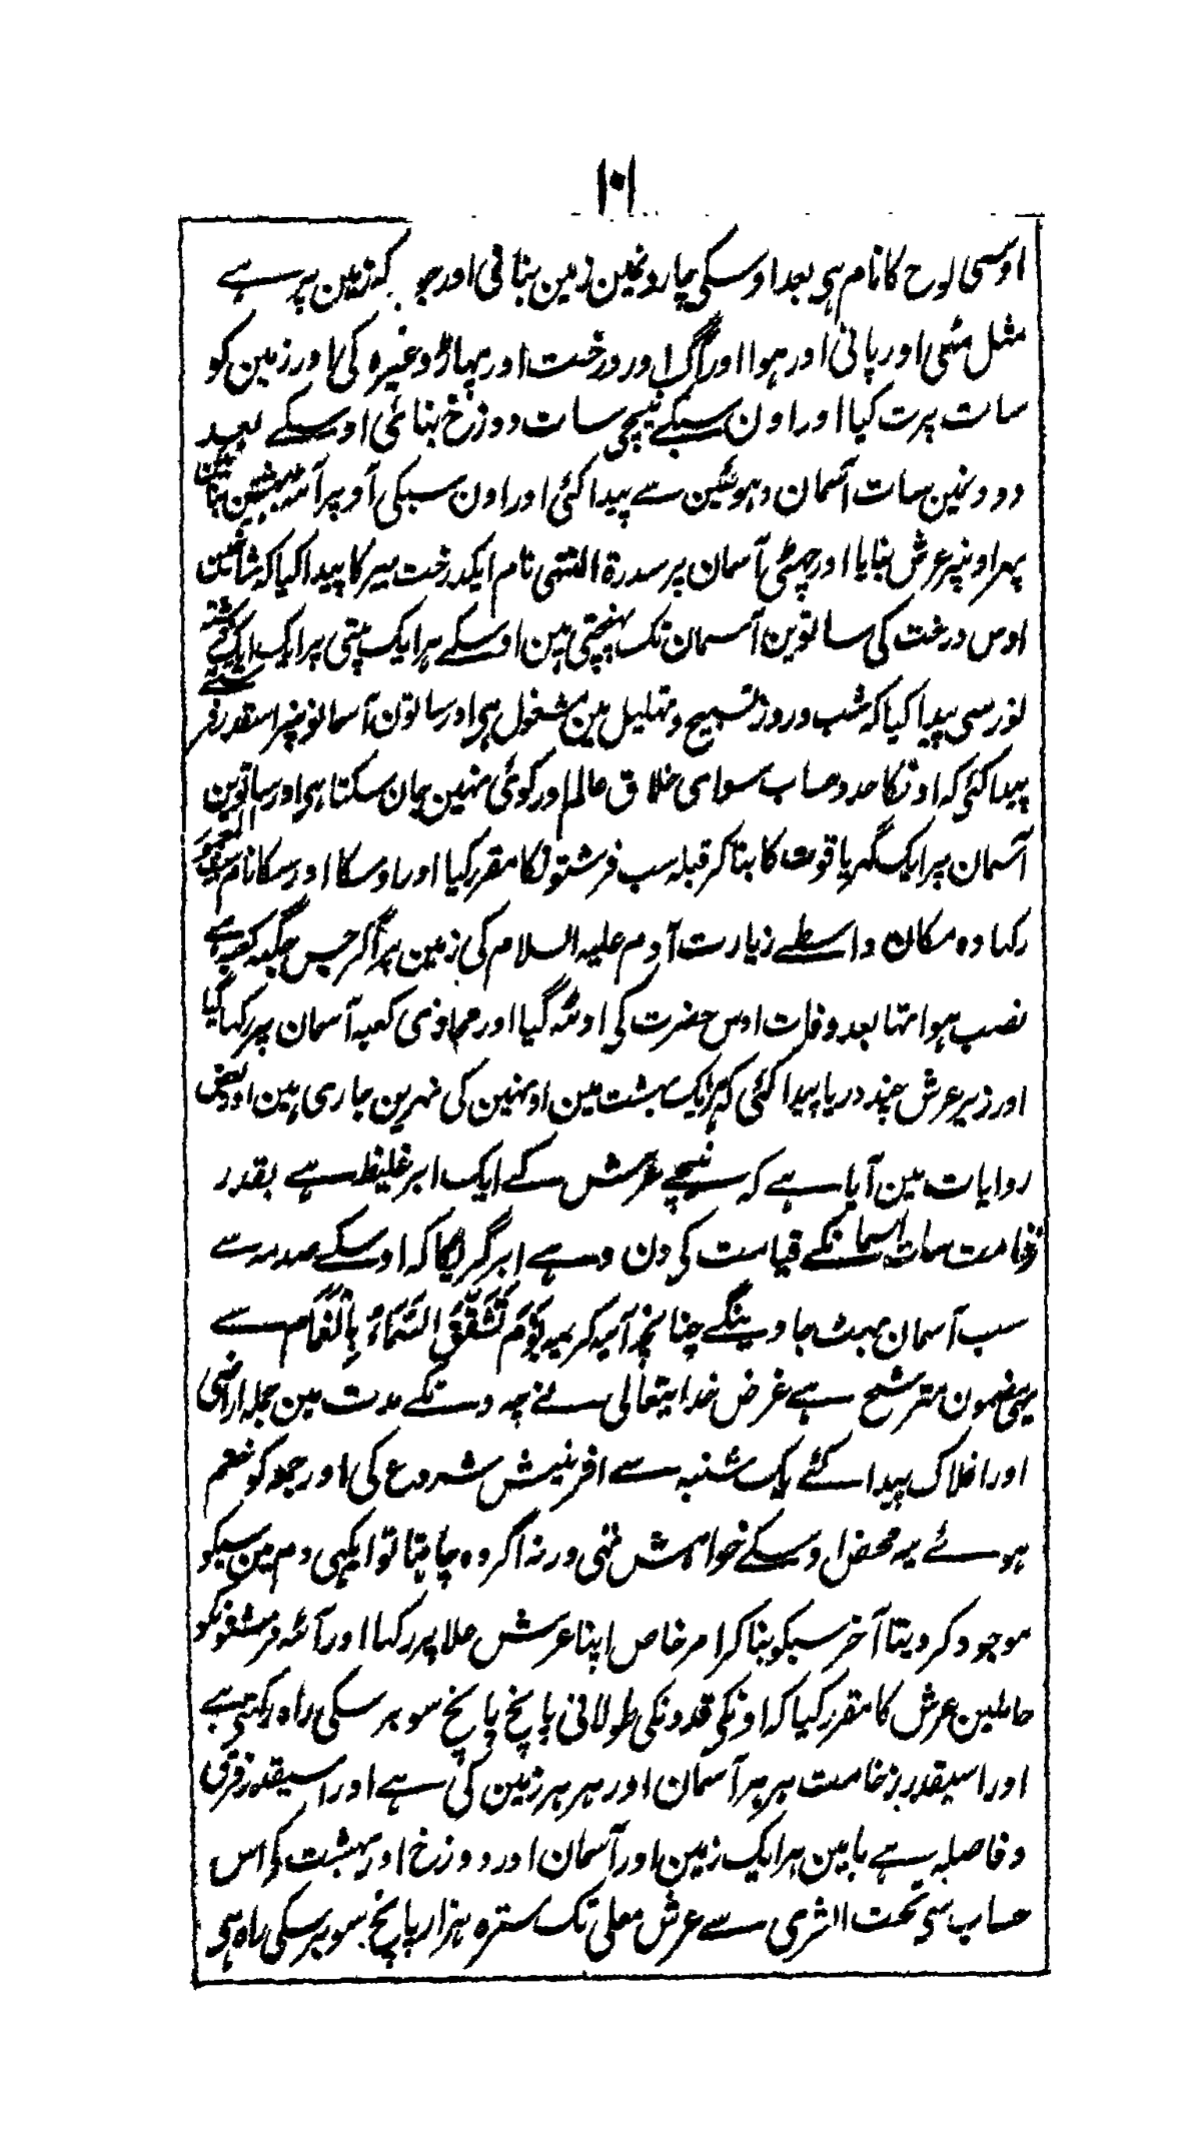 ۱۰۱
اوسی لوح کا نام ہی بعد اوسکی چار دنمین زمین بنائی اور جو کہ زمین پر ہے
مثل مٹی اور پانی اور ہوا اور آگ اور درخت اور پہاڑ وغیرہ کی اور زمین کو
سات پرت کیا اور اون سبکے نیچی سات دوزخ بنائی اوسکے بعد
دو دنمین سات آسمان دہوئین سے پیدا کئی اور اون سبکی اوپر آٹھ بہشتین بنائین
پہر اونپر عرش بنایا اور چھٹی آسمان پر سدرۃ المنتہی نام ایکدرخت بیر کا پیدا کیا کہ شاخین
اوس درخت کی ساتوین آسمان تک پہنچتی ہین اوسکے ہر ایک پتی پر ایک ایک فرشتہ
نور سی پیدا کیا کہ شب و روز تسبیح و تہلیل مین مشغول ہی اور ساتون آسمانونپر اسقدر فرشتے
پیدا کئی کہ اونکا حد و حساب سوای خلاق عالم اور کوئی نہین جان سکتا ہی اور ساتوین
آسمان پر ایک گہر یاقوت کا بنا کر قبلہ سب فرشتونکا مقرر کیا اور اوسکا نام بیت المعمور
رکہا وہ مکان واسطے زیارت آدم علیہ السلام کی زمین پر آکر جس جگہہ کعبہ ہے
نصب ہوا تہا بعد وفات اوس حضرت کی اوٹھہ گیا اور محاذی کعبہ آسمان پر رکہا گیا
اور زیر عرش چند دریا پیدا کئی کہ ہر ایک بہشت مین اونہین کی نہرین جاری ہین اور بعض
روایات مین آیا ہے کہ نیچے عرش کے ایک ابر غلیظ ہے بقدر
ضخامت سات آسمانکے قیامت کی دن وہے ابر گریگا کہ اوسکے صدمہ سے
سب آسمان پہٹ جاوینگے چنانچہ آیہ کریمہ یَوْمَ تَشَقَّقُ السَّمَاءُ بِالْغَمَامِ سے
یہی مضمون مترشح ہے غرض خدایتعالی نے چہ دنکے مدت مین جملہ اراضی
اور افلاک پیدا کئے یک شنبہ سے افرینش شروع کی اور جمعہ کو ختم
ہوئے یہ محض اوسکے خواہش تہی ورنہ اگر وہ چاہتا تو ایکہی دم مین سبکو
موجود کر دیتا آخر سبکو بنا کر امر خاص اپنا عرش علا پر رکہا اور آٹھہ فرشتونکو
حاملین عرش کا مقرر کیا کہ اونکی قدونکی طولانی پانچ پانچ سو برسکی راہ رکہتی ہے
اور اسیقدر ضخامت ہر ہر آسمان اور ہر ہر زمین کی ہے اور اسیقدر فرق
و فاصلہ ہے مابین ہر ایک زمین اور آسمان اور دوزخ اور بہشت کو اس
حساب سی تحت الثری سے عرش معلی تک سترہ ہزار پانچ سو برسکی راہ ہی